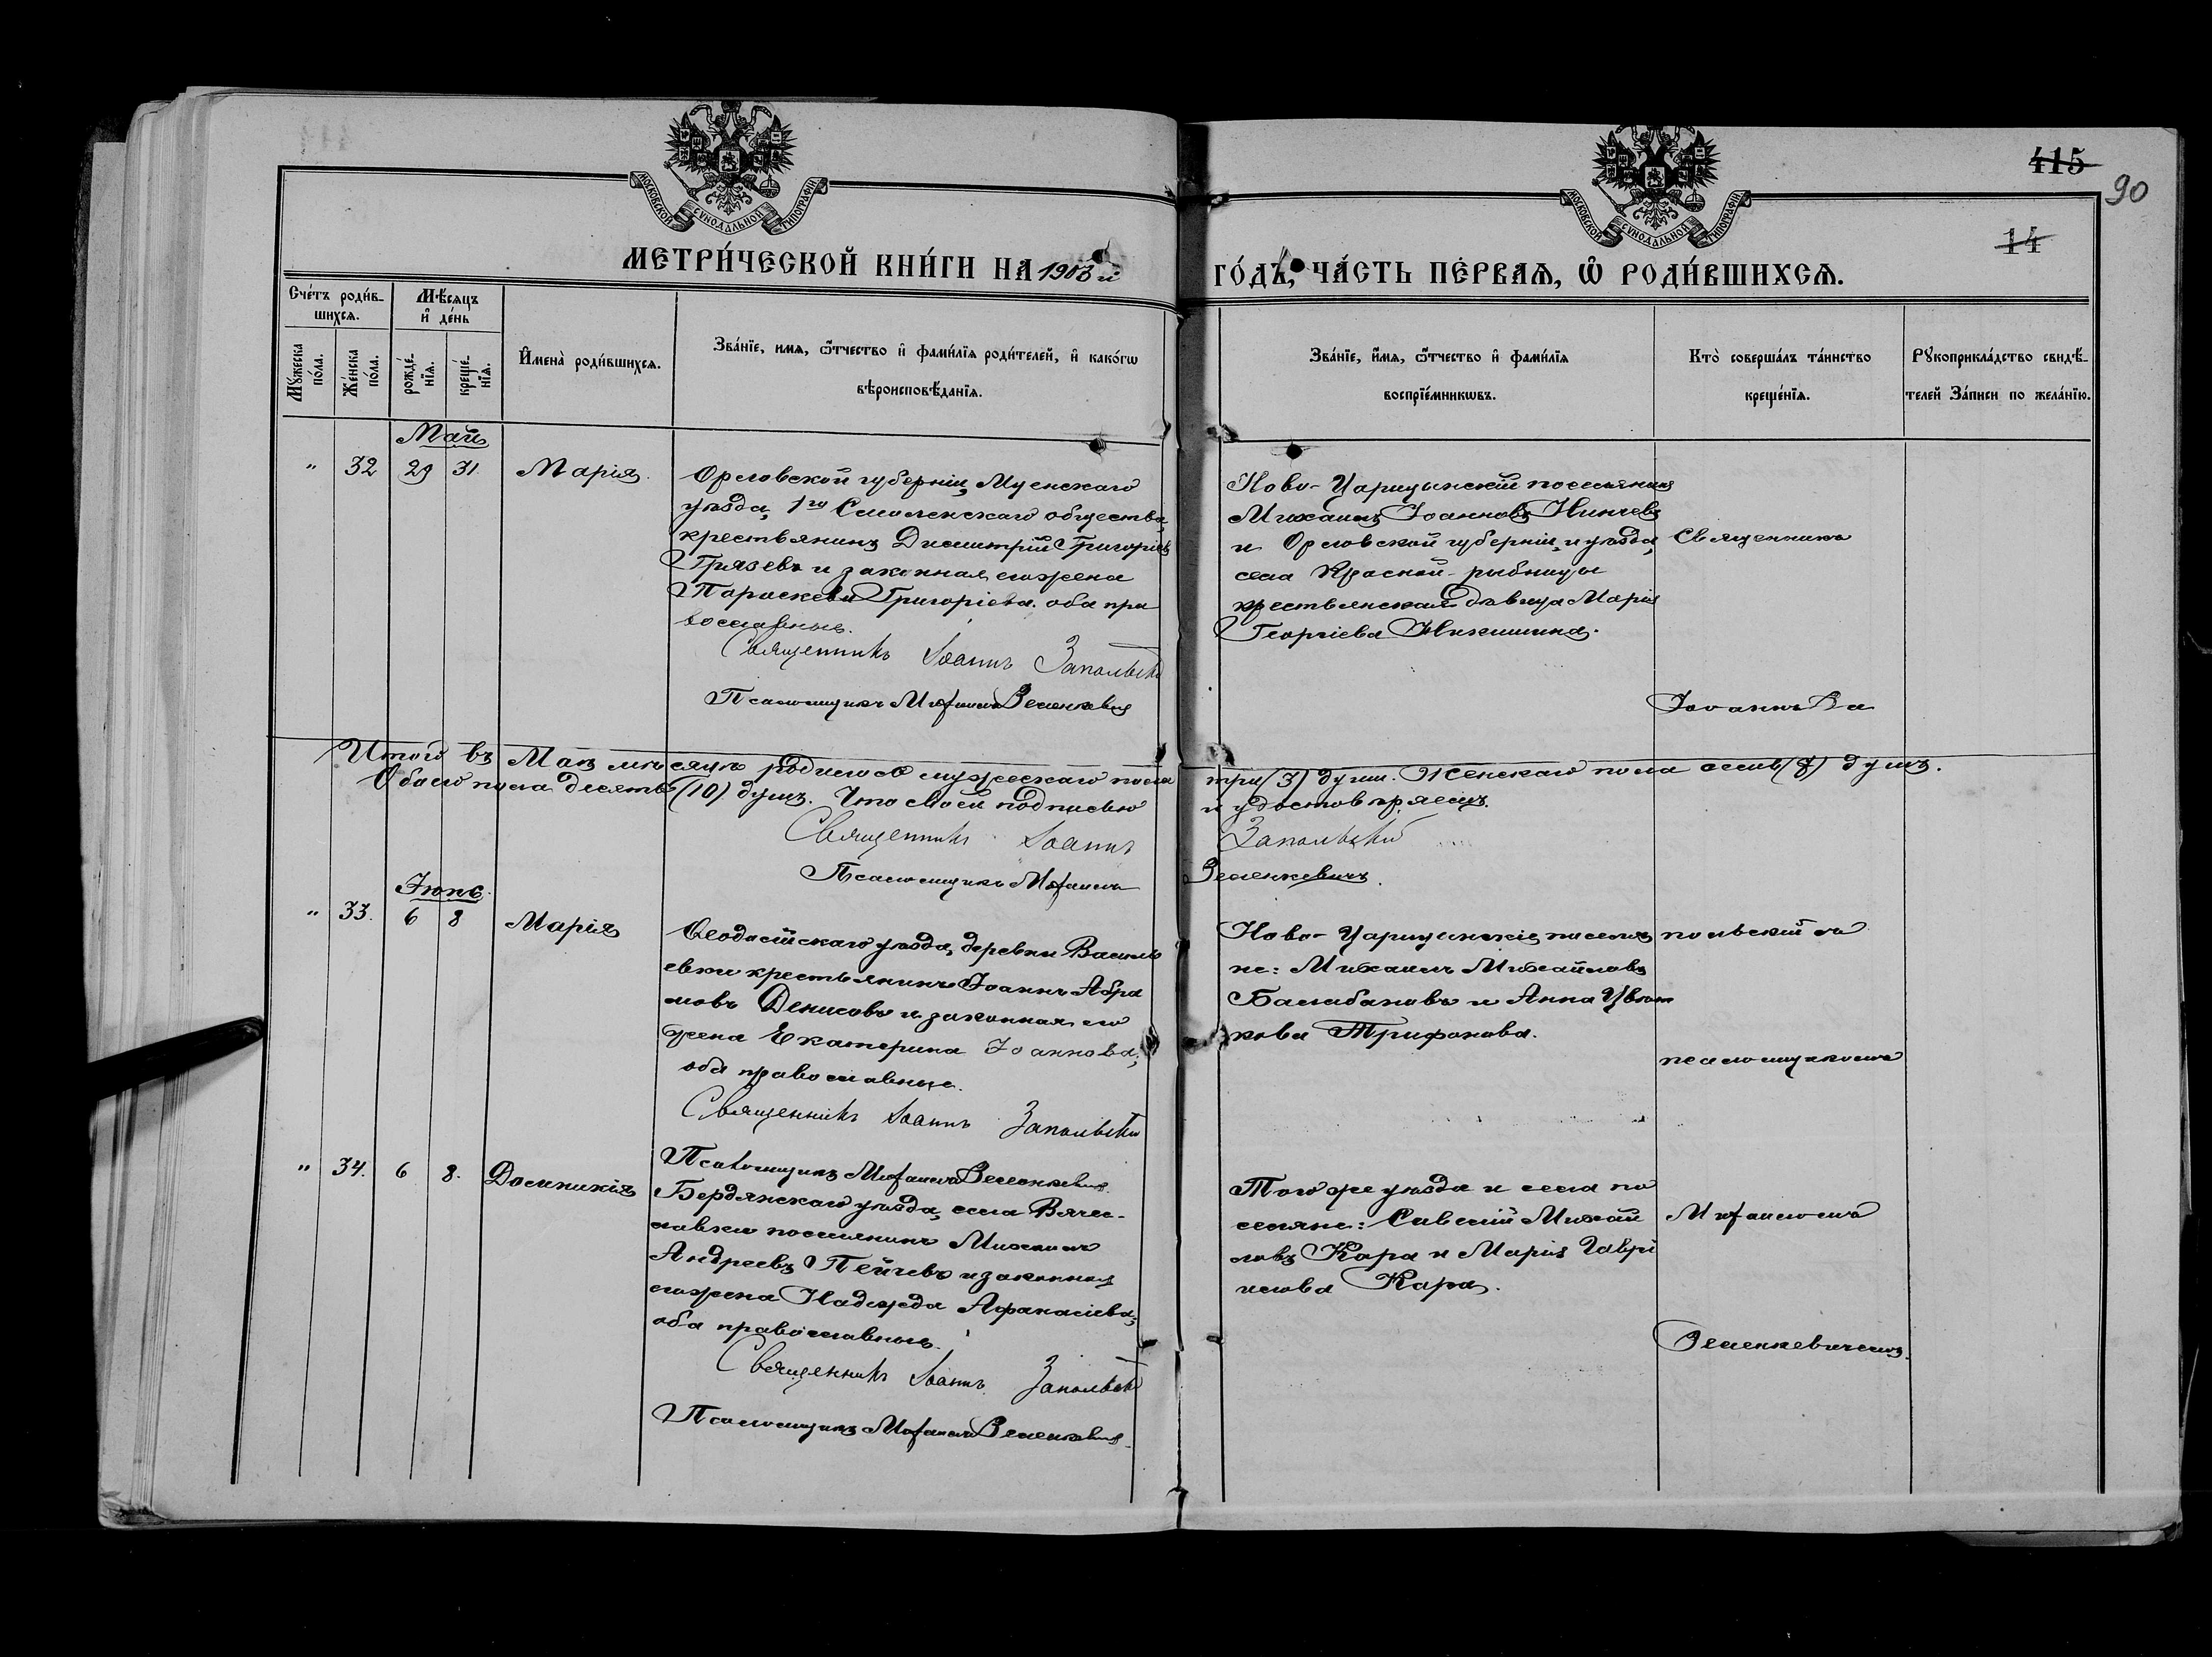 415
90
14
МОСКОВСКОЙ СѴНОДАЛЬНОЙ ТИПОГРАФІИ
МОСКОВСКОЙ СѴНОДАЛЬНОЙ ТИПОГРАФІИ
МЕТРИ́ЧЕСКОЙ КНИ́ГИ НА 1903 й
ГО́ДЪ, ЧА́СТЬ ПЕ́РВАѦ, Ѡ҆ РОДИ́ВШИХСѦ.
Сче́тъ роди́в-
шихсѧ.
Мѣ́сѧцъ
и҆ де́нь
Мꙋ́жеска по́ла.
Же́нска по́ла.
рожде́-
нїѧ.
креще́-
нїѧ.
И҆мена̀ роди́вшихсѧ.
Зва́нїе, имѧ, ѻ҆́тчество и҆ фами́лїѧ роди́телей, и҆ како́гѡ
вѣроисповѣ́данїѧ.
Зва́нїе, и҆́мѧ, ѻ҆́тчество и҆ фами́лїѧ
воспрїе́мникѡвъ.
Кто̀ соверша́лъ та́инство
креще́нїѧ.
Рꙋкоприкла́дство свидѣ́-
телей За́писи по жела́нїю.
Май
" 32 29 31 Марія.
Орловской губерніи, Мценскаго
уѣзда, 1го Смоленскаго общества,
крестьянинъ Димитрій Григоріевъ
Грязевъ и законная его жена
Параскева Григоріева. оба пра
вославные.
Священникъ Іоаннъ Запольскій
Псаломщикъ Михаилъ Зеленкевичъ
Ново-Царицынскій поселянинъ
Михаилъ Іоанновъ Нинчевъ
и Орловской губерніи, и уѣзда,
села Красной-рыбницы
крестьянская дѣвица Марія
Георгіева Никишина.
Священникъ
Іоаннъ За
Итого въ Маѣ мѣсяцѣ родилось мужескаго пола три (3) души. Женскаго пола семь (7) душъ.
Обоего пола десять (10) душъ. Что своею подписью и удостовѣряемъ.
Священникъ Іоаннъ Запольскій
Псаломщикъ Михаилъ Зеленкевичъ.
Іюнь.
" 33. 6 8 Марія
Ѳеодосійскаго уѣзда, деревни Василь
евки крестьянинъ Іоаннъ Абра
мовъ Денисовъ и законная его
жена Екатерина Іоаннова,
оба православные.
Священникъ Іоаннъ Запольскій
Псаломщикъ Михаилъ Зеленкевичъ.
Ново-Царицынскіе поселя
не: Михаилъ Михайловъ
Балабановъ и Анна Цвѣт
кова Трифонова.
польскій съ
псаломщикомъ
" 34. 6 8. Домникія
Бердянскаго уѣзда, села Вячес-
лавки поселянинъ Михаилъ
Андреевъ Пейчевъ и законная
его жена Надежда Афанасіева,
оба православные.
Священникъ Іоаннъ Запольскій
Псаломщикъ Михаилъ Зеленкевичъ.
Того же уѣзда и села по
селяне: Савелій Михай
ловъ Кара и Марія Гаврі
илова Кара.
Михаиломъ
Зеленкевичемъ.